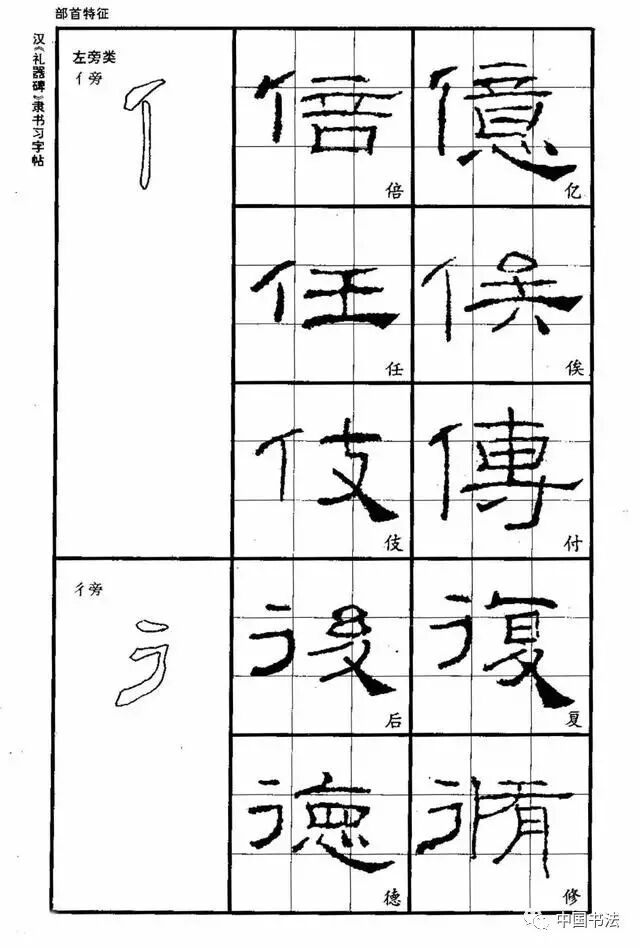 部首特征
汉《礼器碑》隶书习字帖
左旁类
亻旁
亻
倍 億
倍 亿
任 俟
任 俟
伎 傳
伎 付
彳旁
彳
後 復
后 复
德 脩
德 修
中国书法